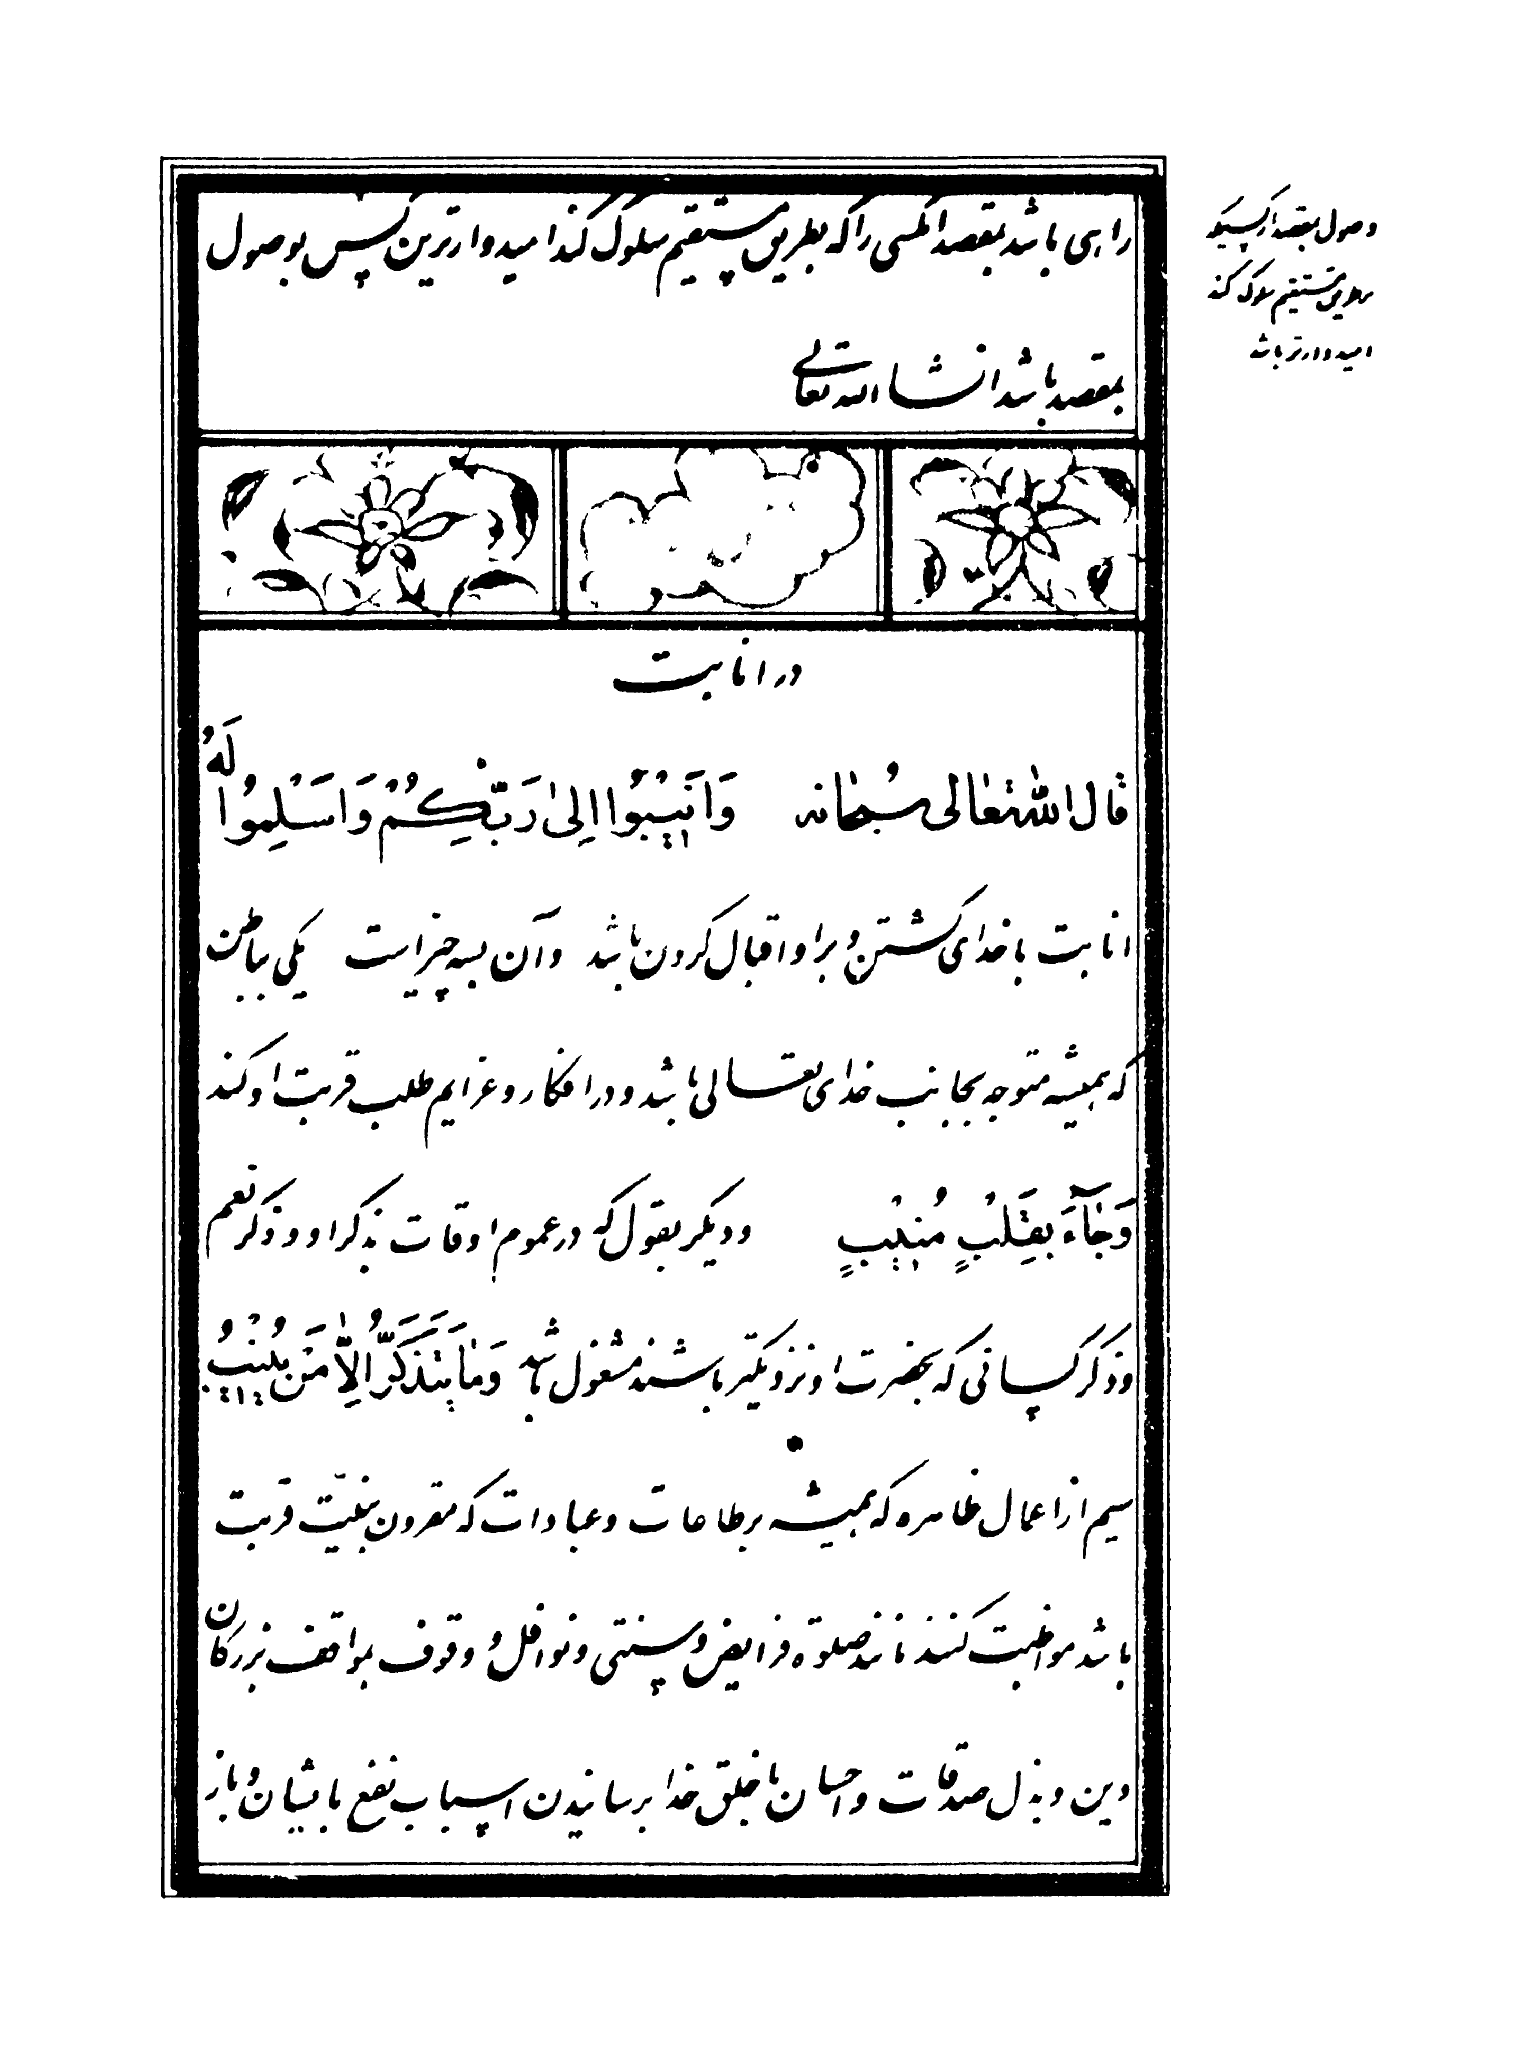 راهی باشد بمقصد اکسی را که بطریق مستقیم سلوک کند امیدوارترین کس بوصول
بمقصد باشد انشاالله تعالی
در انابت
قال الله تعالی سبحانه وَاَنیبُوا اِلیٰ رَبِّکُمْ وَاَسْلِمُوا لَهُ
انابت با خدای گشتن و براو اقبال کردن باشد وآن بسه چیز است یکی بباطن
که همیشه متوجه بجانب خدای تعالی باشد و در افکار و عزایم طلب قربت او کند
وَجٰآءَ بِقَلْبٍ مُنیبٍ ودیگر بقول که در عموم اوقات بذکر او و ذکر نعم
وذکر کسانی که بحضرت او نزدیکتر باشند مشغول باشد وَمٰا یَتَذَکَّرُ اِلّٰا مَنْ یُنیبُ
سیم از اعمال ظاهره که همیشه بر طاعات وعبادات که مقرون بنیّت قربت
باشد مواظبت کنند مانند صلوة فرایض و سنتی و نوافل و وقوف بمواقف بزرگان
دین وبذل صدقات و احسان با خلق خدا برسانیدن اسباب نفع بایشان و باز
وصول بمقصد از کسیکه
بطریق مستقیم سلوک کند
امیدوارتر باشد